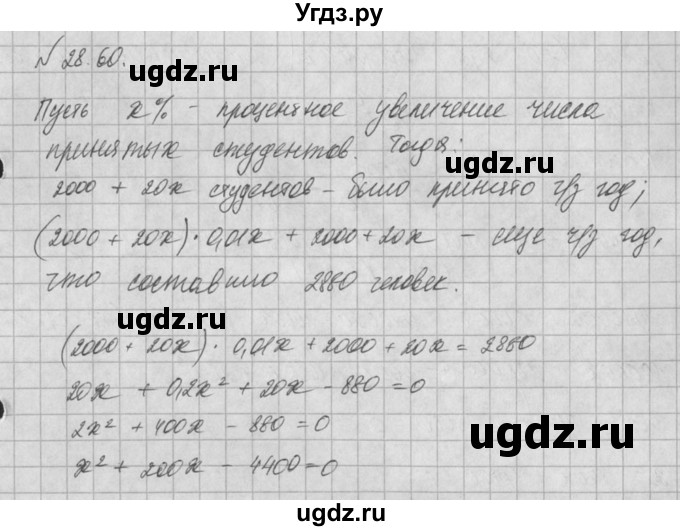 Угдз.ру
№ 28.60.
ugdz.ru
Пусть x% - процентное увеличение числа
ugdz.ru
принятых студентов. Тогда:
2000 + 20x студентов - было принято ч/з год;
ugdz.ru
(2000 + 20x) · 0,01x + 2000 + 20x - еще ч/з год,
что составило 2880 человек.
ugdz.ru
(2000 + 20x) · 0,01x + 2000 + 20x = 2880
20x + 0,2x² + 20x - 880 = 0
ugdz.ru
2x² + 400x - 880 = 0
ugdz.ru
x² + 200x - 4400 = 0
©ugdz.ru